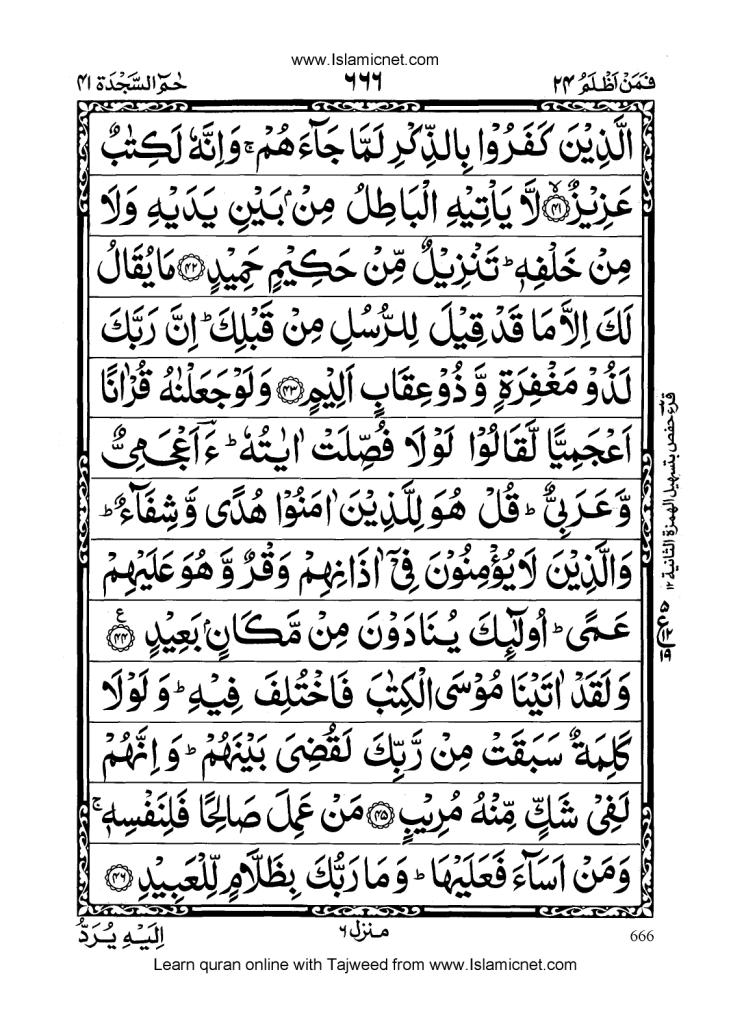 www.Islamicnet.com
فَمَنْ اَظْلَمُ ۲۴
۶۶۶
حٰمٓ السَّجْدَة ۴۱
الَّذِيْنَ كَفَرُوْا بِالذِّكْرِ لَمَّا جَآءَهُمْ ۚ وَاِنَّهٗ لَكِتٰبٌ
عَزِيْزٌ ۙ﴿۴۱﴾ لَّا يَاْتِيْهِ الْبَاطِلُ مِنْۢ بَيْنِ يَدَيْهِ وَلَا
مِنْ خَلْفِهٖ ؕ تَنْزِيْلٌ مِّنْ حَكِيْمٍ حَمِيْدٍ ﴿۴۲﴾ مَا يُقَالُ
لَكَ اِلَّا مَا قَدْ قِيْلَ لِلرُّسُلِ مِنْ قَبْلِكَ ؕ اِنَّ رَبَّكَ
لَذُوْ مَغْفِرَةٍ وَّذُوْ عِقَابٍ اَلِيْمٍ ﴿۴۳﴾ وَلَوْ جَعَلْنٰهُ قُرْاٰنًا
اَعْجَمِيًّا لَّقَالُوْا لَوْلَا فُصِّلَتْ اٰيٰتُهٗ ؕ ءَؔاَعْجَمِىٌّ
وَّعَرَبِىٌّ ؕ قُلْ هُوَ لِلَّذِيْنَ اٰمَنُوْا هُدًى وَّشِفَآءٌ ؕ
وَالَّذِيْنَ لَا يُؤْمِنُوْنَ فِىْۤ اٰذَانِهِمْ وَقْرٌ وَّهُوَ عَلَيْهِمْ
عَمًى ؕ اُولٰٓئِكَ يُنَادَوْنَ مِنْ مَّكَانٍۢ بَعِيْدٍ ﴿۴۴﴾ ع
وَلَقَدْ اٰتَيْنَا مُوْسَى الْكِتٰبَ فَاخْتُلِفَ فِيْهِ ؕ وَلَوْلَا
كَلِمَةٌ سَبَقَتْ مِنْ رَّبِّكَ لَقُضِىَ بَيْنَهُمْ ؕ وَاِنَّهُمْ
لَفِىْ شَكٍّ مِّنْهُ مُرِيْبٍ ﴿۴۵﴾ مَنْ عَمِلَ صَالِحًا فَلِنَفْسِهٖ ۚ
وَمَنْ اَسَآءَ فَعَلَيْهَا ؕ وَمَا رَبُّكَ بِظَلَّامٍ لِّلْعَبِيْدِ ﴿۴۶﴾
قرء حفص بتسهيل الهمزة الثانية ۱۲
۵
ع ۱۲
۱۹
666
منزل ۶
اِلَيْهِ يُرَدُّ
Learn quran online with Tajweed from www.Islamicnet.com